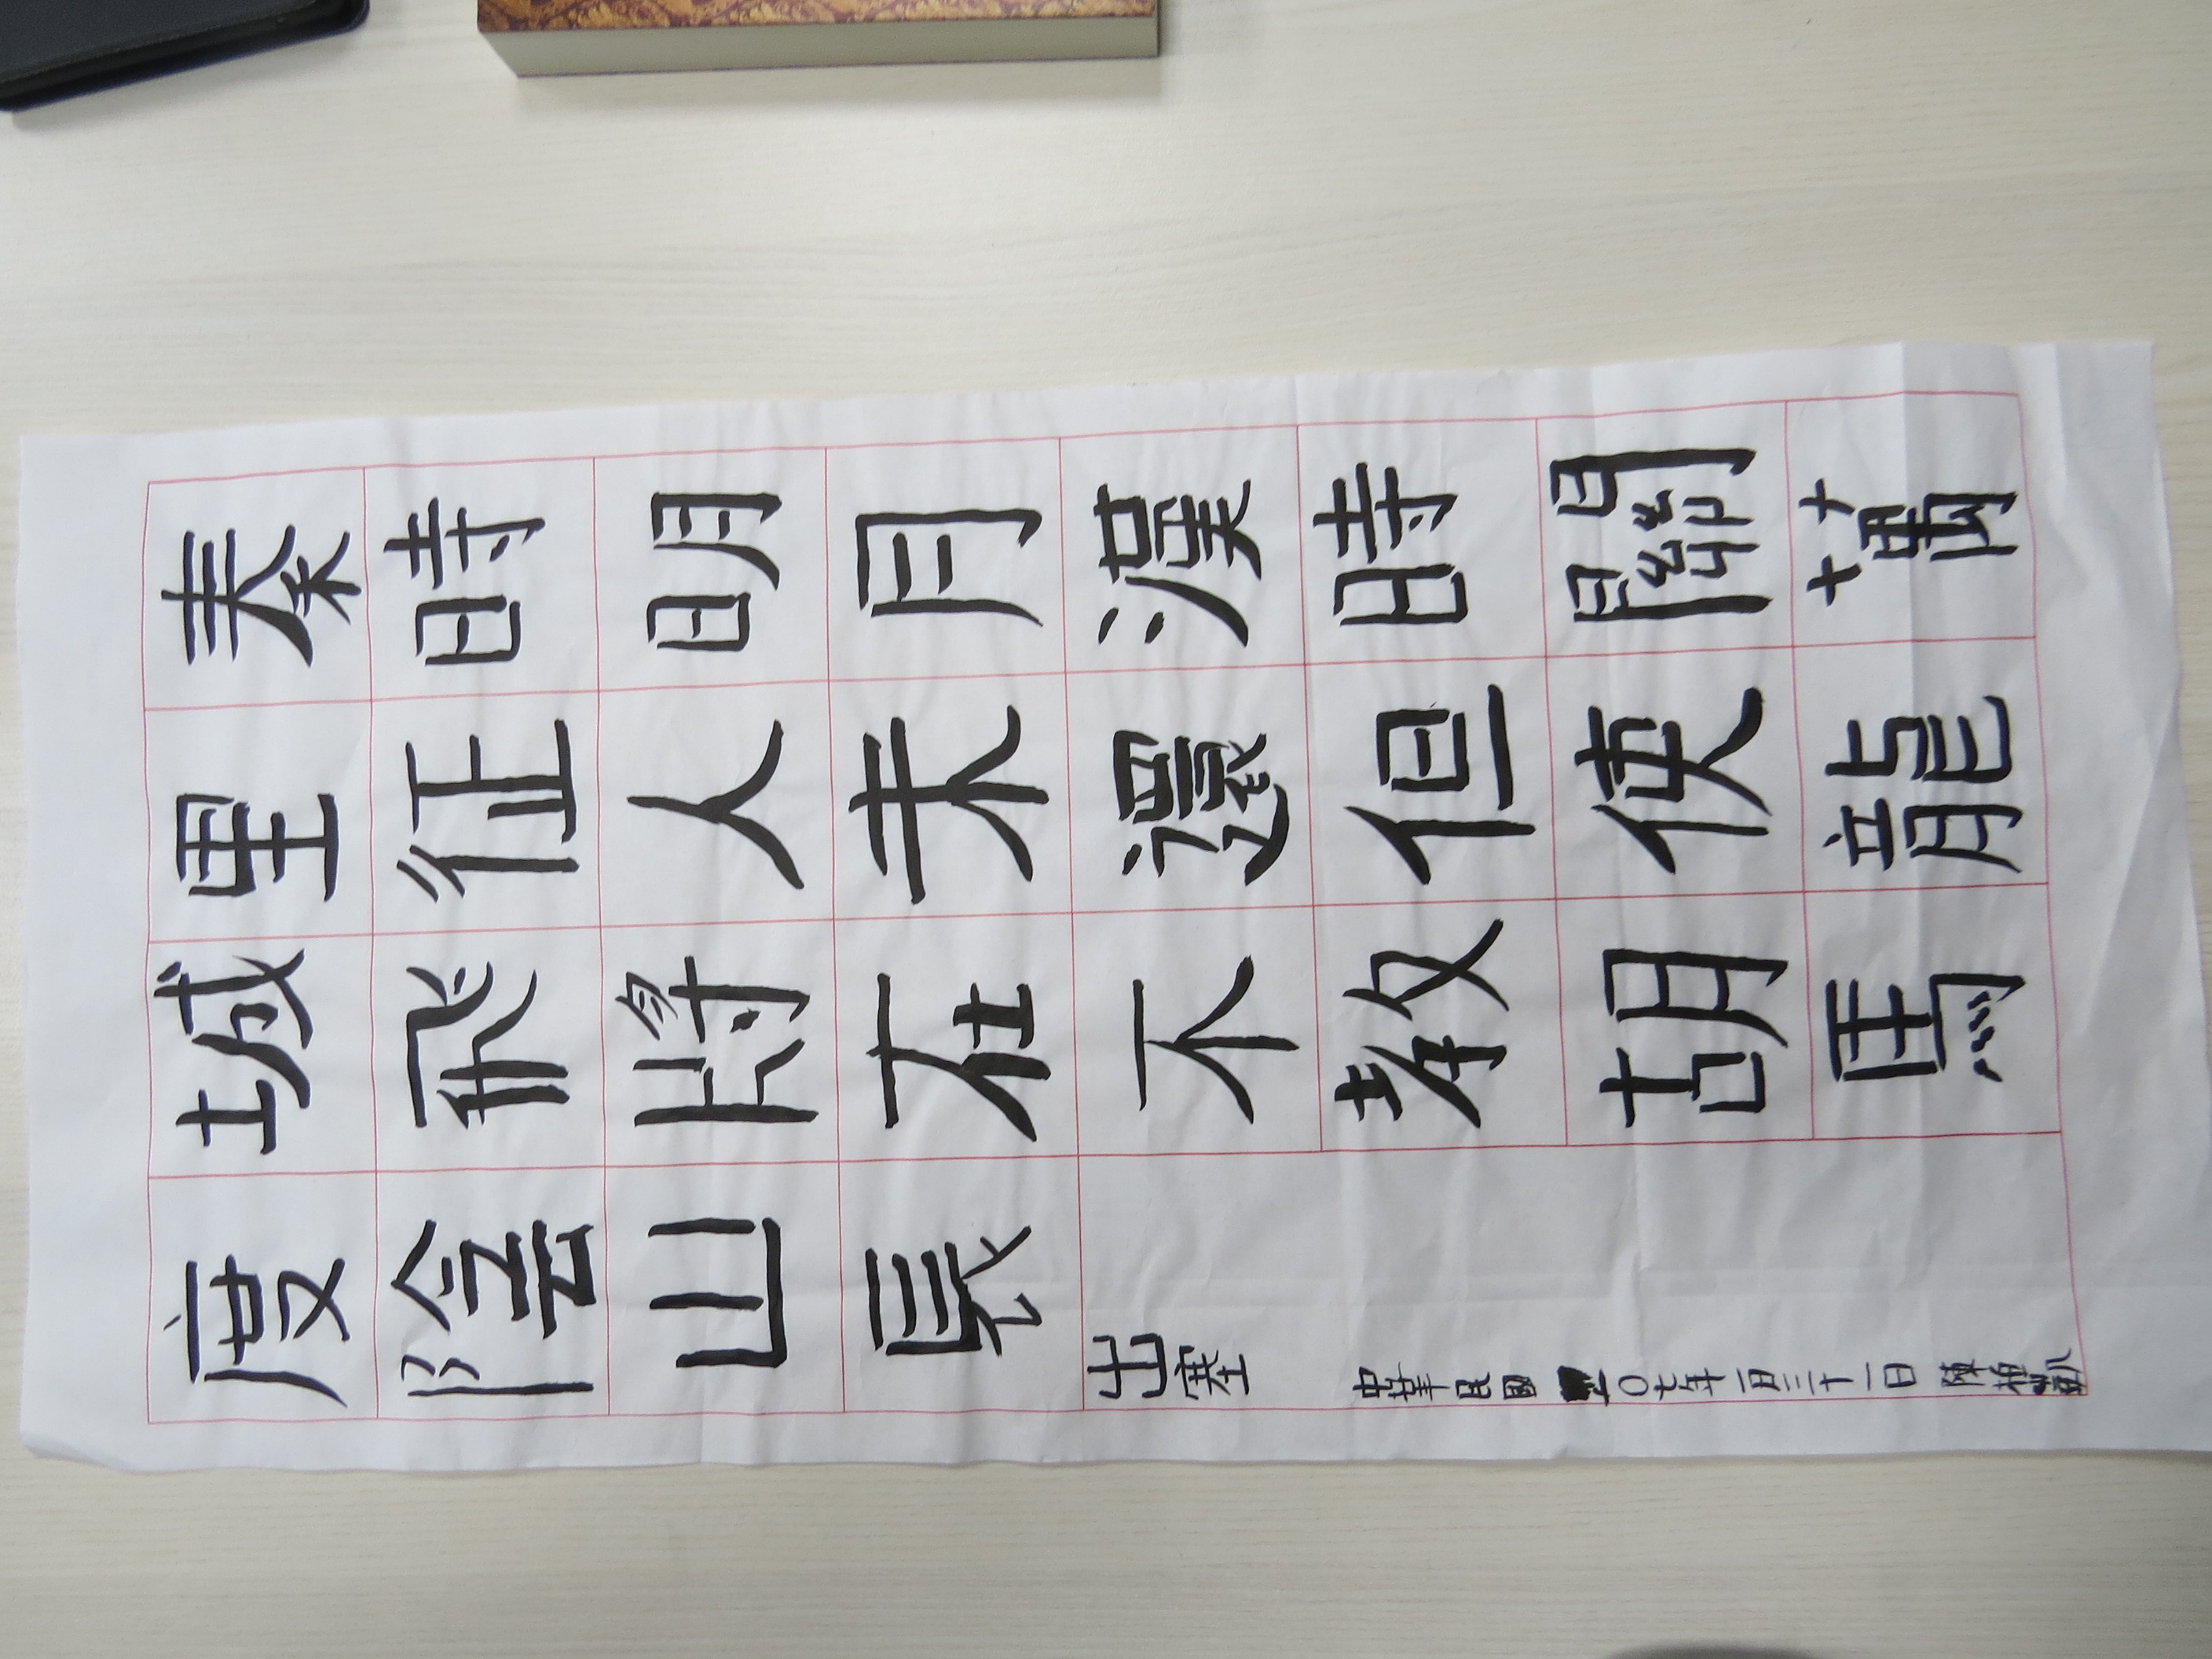 秦時明月漢時關萬
里征人未還但使龍
城飛將在不教胡馬
度陰山長
出塞
中華民國一〇七年一月三十一日 陳